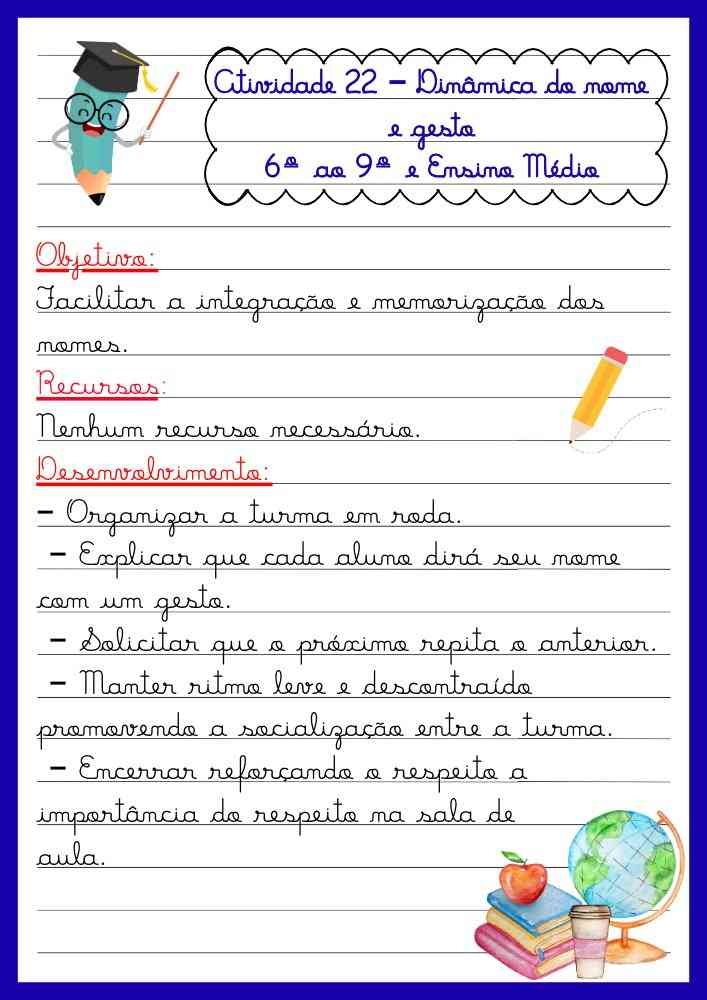 Atividade 22 - Dinâmica do nome
e gesto
6º ao 9º e Ensino Médio
Objetivo:
Facilitar a integração e memorização dos
nomes.
Recursos:
Nenhum recurso necessário.
Desenvolvimento:
- Organizar a turma em roda.
- Explicar que cada aluno dirá seu nome
com um gesto.
- Solicitar que o próximo repita o anterior.
- Manter ritmo leve e descontraído
promovendo a socialização entre a turma.
- Encerrar reforçando o respeito a
importância do respeito na sala de
aula.